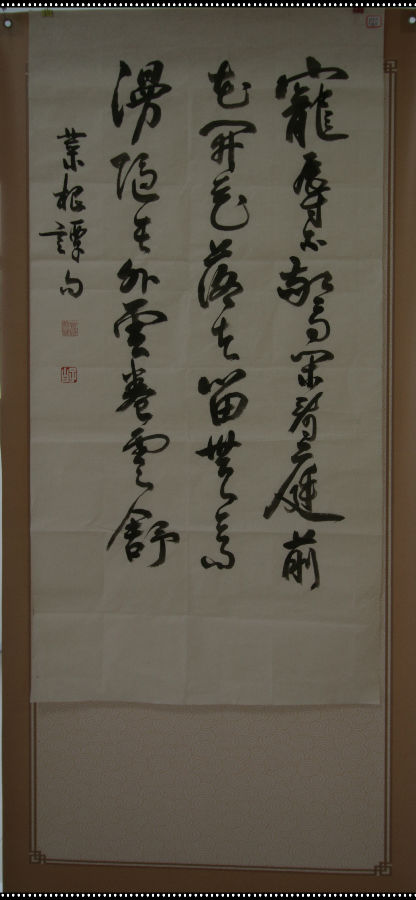 寵辱不驚閑看庭前
花開花落去留無意
漫隨天外雲卷雲舒
菜根譚句